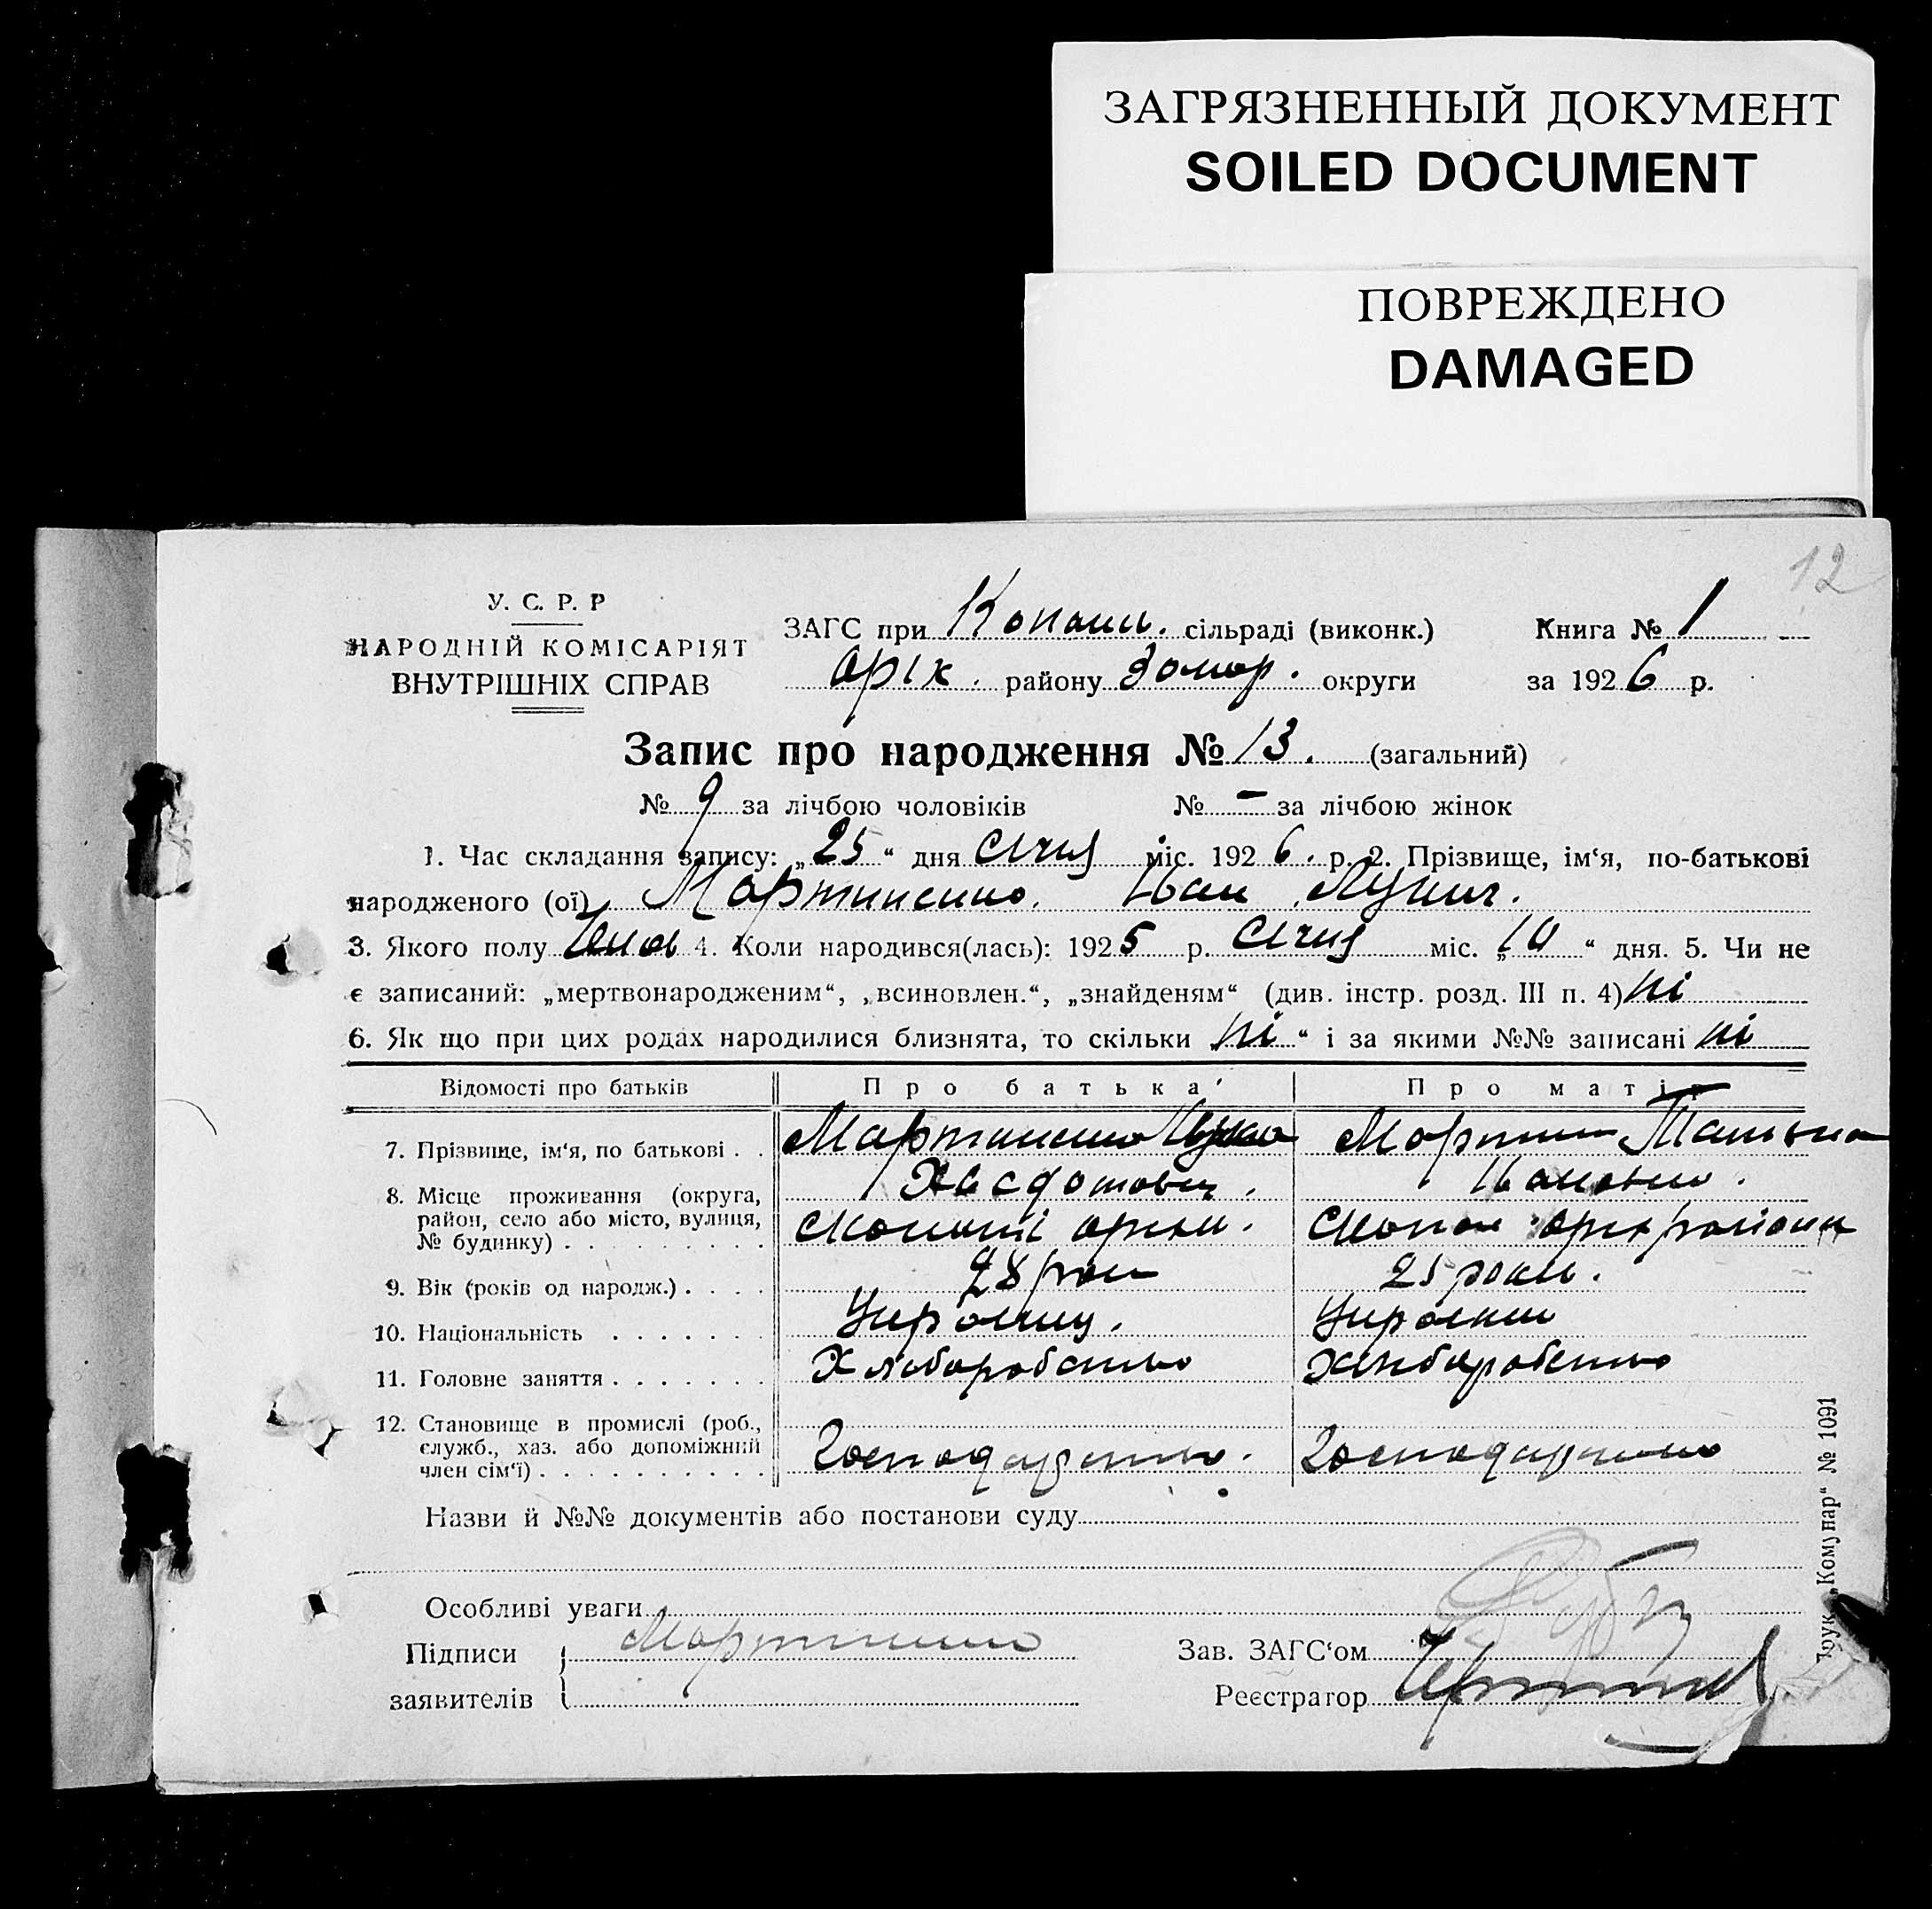 ЗАГРЯЗНЕННЫЙ ДОКУМЕНТ
SOILED DOCUMENT
ПОВРЕЖДЕНО
DAMAGED
12
У. С. Р. Р
НАРОДНІЙ КОМІСАРІЯТ
ВНУТРІШНІХ СПРАВ
ЗАГС при Копани. сільраді (виконк.)
Оріх. району Запор. округи
Книга № 1
за 1926 р.
Запис про народження № 13. (загальний)
№ 9 за лічбою чоловіків № - за лічбою жінок
1. Час складання запису: „25“ дня Січня міс. 1926. р. 2. Прізвище, ім‘я, по-батькові
народженого (ої) Мартиненко. Іван Лукич.
3. Якого полу 4. Коли народився(лась): 1925 р. Січня міс. „10“ дня. 5. Чи не
є записаний: „мертвонародженим“, „всиновлен.“, „знайденям“ (див. інстр. розд. III п. 4) ні
6. Як що при цих родах народилися близнята, то скільки „ні“ і за якими №№ записані ні
Відомості про батьків Про батька Про матір
7. Прізвище, ім‘я, по батькові . . Мартиненко Лука Мартин Татьяна
Ивановна.
8. Місце проживання (округа,
район, село або місто, вулиця,
№ будинку) . . . . . . . . .
9. Вік (років од народж.) . . . . 28 рок 25 роки.
10. Національність . . . . . . . Українец. Украинка
11. Головне заняття . . . . . . . Хліборобство Хліборобство
12. Становище в промислі (роб.,
служб., хаз. або допоміжний
член сім‘ї) . . . . . . . . . . Господарство. Господарство
Назви й №№ документів або постанови суду
Особливі уваги
Підписи
заявителів
Мартиненко
Зав. ЗАГС‘ом
Реєстратор
Друк. „Комунар“ № 1091